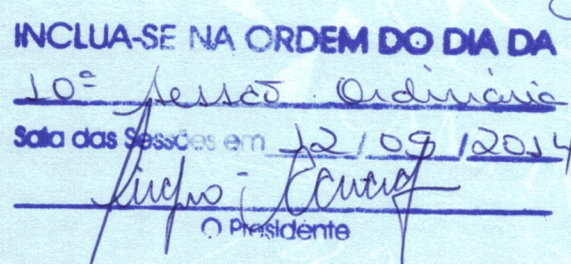 INCLUA-SE NA ORDEM DO DIA DA
10ª Sessão Ordinária
Sala das Sessões em 12/09/2014
O Presidente